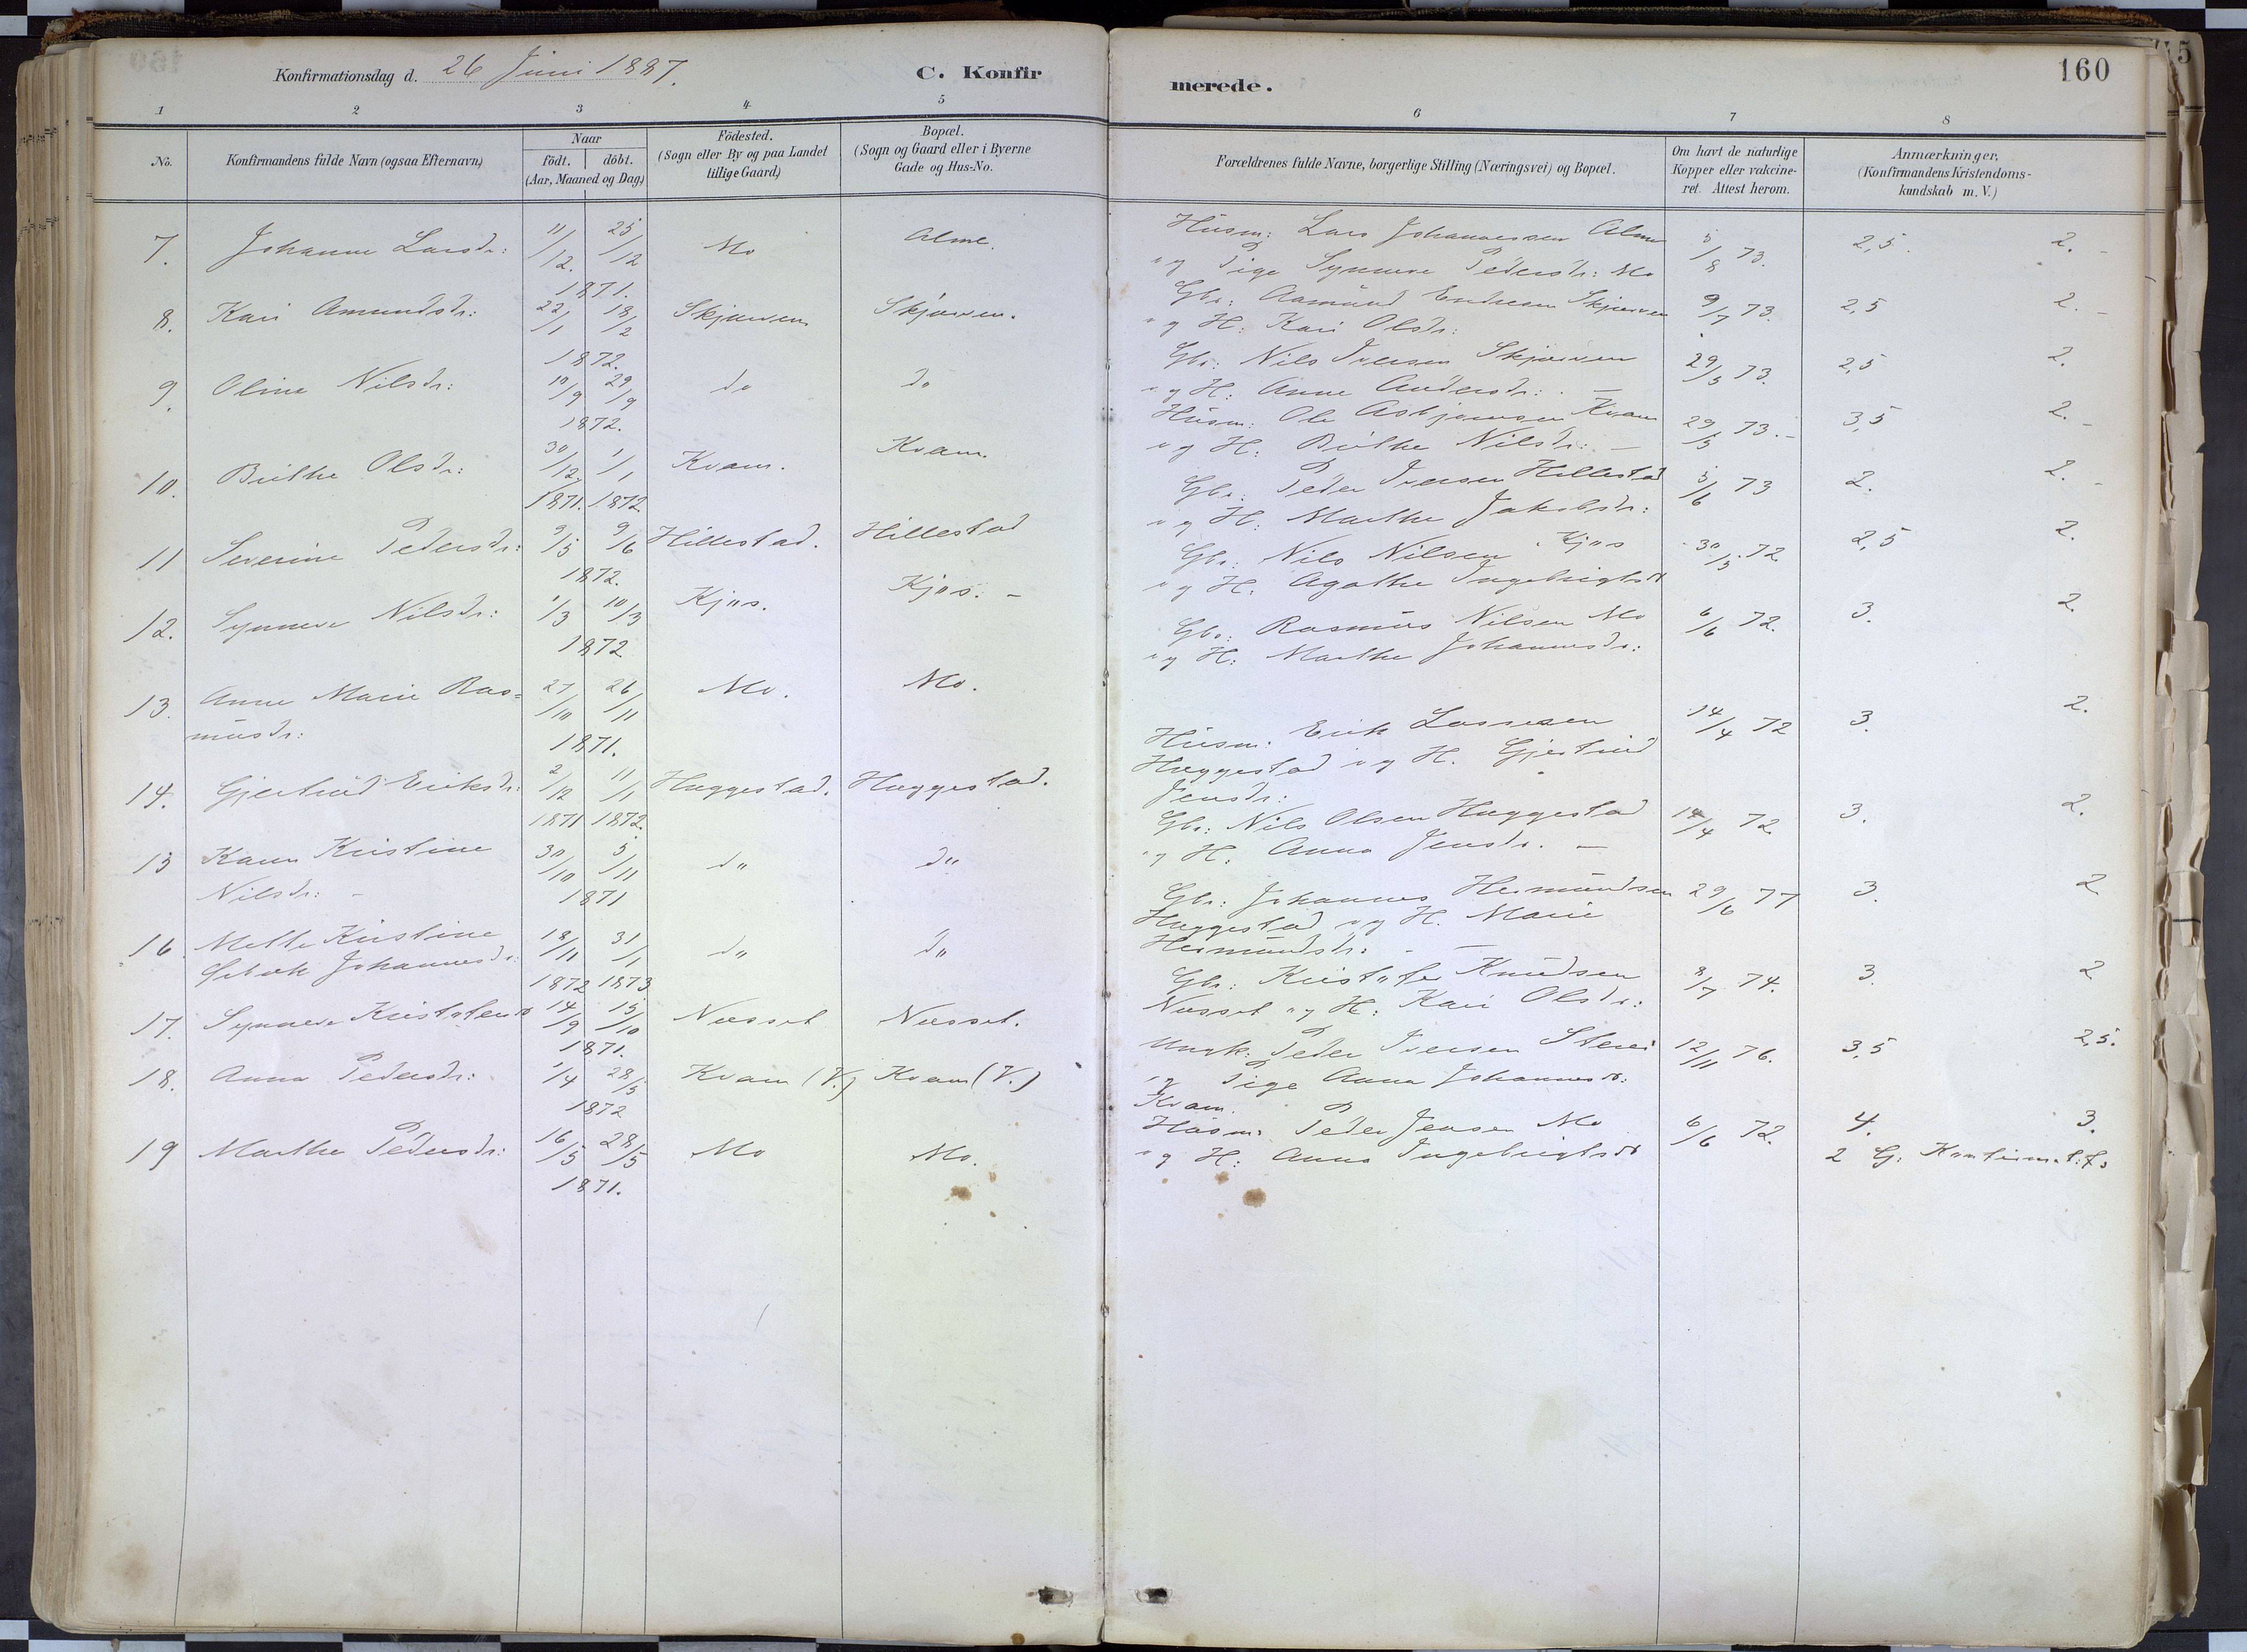 160
Konfirmationsdag d. 26 Juni 1887.
C. Konfirmerede.
1 2 3 4 5 6 7 8
No.
Konfirmandens fulde Navn (ogsaa Efternavn)
Naar
födt. döbt.
(Aar, Maaned og Dag.)
Födested.
(Sogn eller By og paa Landet
tillige Gaard)
Bopæl.
(Sogn og Gaard eller i Byerne
Gade og Hus-No.
Forældrenes fulde Navne, borgerlige Stilling (Næringsvei) og Bopæl.
Om havt de naturlige
Kopper eller vakcine-
ret. Attest herom.
Anmærkninger,
(Konfirmandens Kristendoms-
kundskab m. V.)
7. Johanne Larsdr: 11/12. 25/12 1871. Mo Alme.
Husm: Lars Johannessen Alme 5/8 73. 2,5. 2. -
og Pige Synneve Pedersdr: Mo
8. Kari Amundsdr: 22/1 18/2 1872. Skjærven Skjærven.
Gbr: Aamund Endresen Skjærven 9/7 73. 2,5 2. -
og H: Kari Olsdr:
9. Oline Nilsdr: 10/9 29/9 1872. do do
Gbr: Nils Iversen Skjærven 29/5 73. 2,5 2.
og H: Anne Andersdr: -
10. Birthe Olsdr: 30/12 1/1 1871. 1872. Kvam. Kvam.
Husm: Ole Asbjørnsen Kvam 29/5 73. - 3,5 2. -
og H: Birthe Nilsdr: -
11 Severine Pedersdr: 9/5 9/6 1872. Hillestad. Hillestad
Gbr: Peder Iversen Hillestad 5/6 73 2. 2. -
og H: Marthe Jakobsdr:
12. Synneve Nilsdr: 1/3 10/3 1872 Kjøs. Kjøs. -
Gbr: Nils Nilsen Kjøs 30/5 72 2,5 2.
og H: Agathe Ingebrigtsdr
13. Anne Marie Ras-
musdr: 27/10 26/11 1871. Mo. Mo.
Gbr: Rasmus Nilsen Mo 6/6 72. 3. 2.
og H: Marthe Johannesdr:
14. Gjertrud Eriksdr: 2/12 11/1 1871 1872. Huggestad. Huggestad.
Husm: Erik Lassesen 14/4 72 3. 2.
Huggestad og H. Gjertrud
Jensdr:
15 Karen Kristine
Nilsdr: - 30/10 5/11 1871 do do
Gbr: Nils Olsen Huggestad 14/4 72. 3. 2.
og H: Anna Jensdr. -
16. Mette Kirstine
Johannesdr: 18/11 31/1 1872 1873 do do
Gbr: Johannes Hermundsen 29/6 77 3. 2
Huggestad og H. Marie
Hermundsdr: -
17. Synneve Kristofersdr 14/9 15/10 1871. Næsset Næsset.
Gbr: Kristofer Knudsen 8/7 74. 3. 2
Næsset og H: Kari Olsdr:
18. Anna Pedersdr: 1/4 28/5 1872 Kvam (V.) Kvam (V.)
Ungk: Peder Iversen 12/11 76. 3,5 2,5.
og Pige Anna Johannesdr:
Kvam.
19 Marthe Pedersdr: 16/5 28/5 1871. Mo Mo.
Husm: Peder Jensen Mo 6/6 72. 4. 3.
og H: Anna Ingebrigtsdr 2 G: